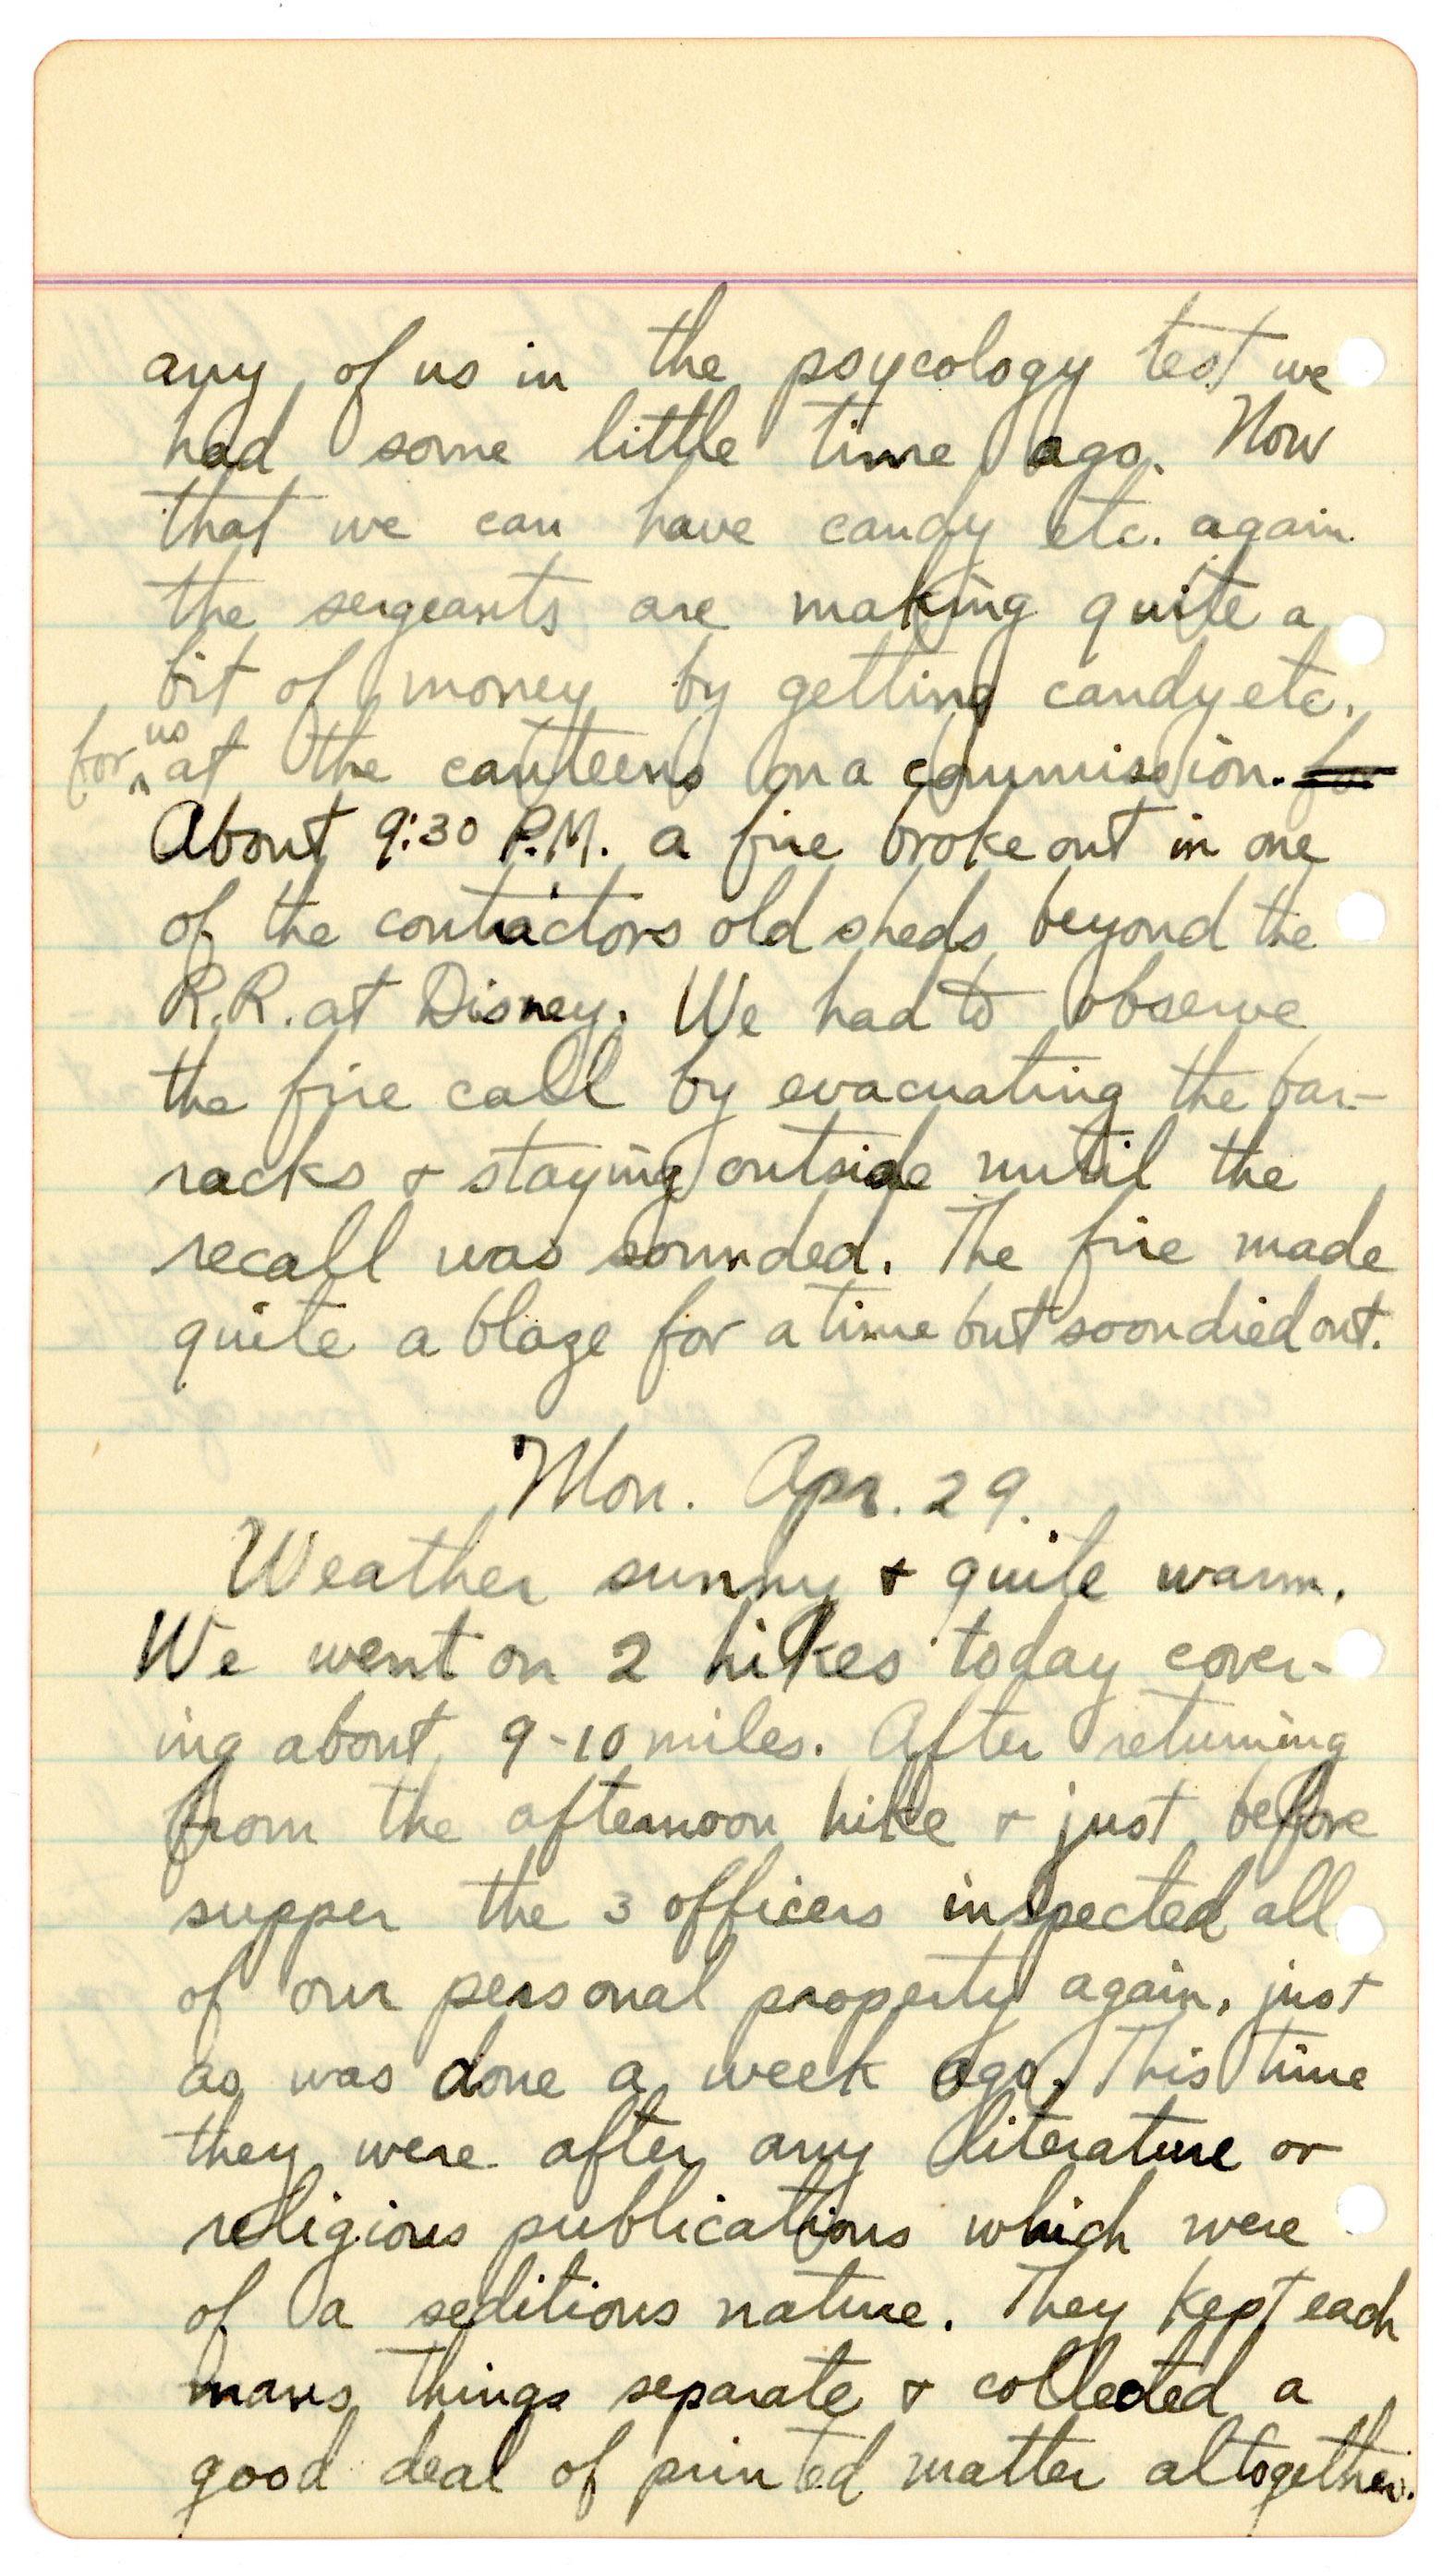 any of us in the psycology test we
had some little time ago. Now
that we can have candy etc. again
the sergeants are making quite a
bit of money by getting candy etc.
for us at the canteens on a commission. for
About 9:30 P.M. a fire broke out in one
of the contractors old sheds beyond the
R.R. at Disney. We had to observe
the fire call by evacuating the bar-
racks + staying outside until the
recall was sounded. The fire made
quite a blaze for a time but soon died out.
Mon. Apr. 29.
Weather sunny + quite warm.
We went on 2 hikes today cover-
ing about 9-10 miles. After returning
from the afternoon hike + just before
supper the 3 officers inspected all
of our personal property again, just
as was done a week ago. This time
they were after any literature or
religious publications which were
of a seditious nature. They kept each
mans things separate + collected a
good deal of printed matter altogether.